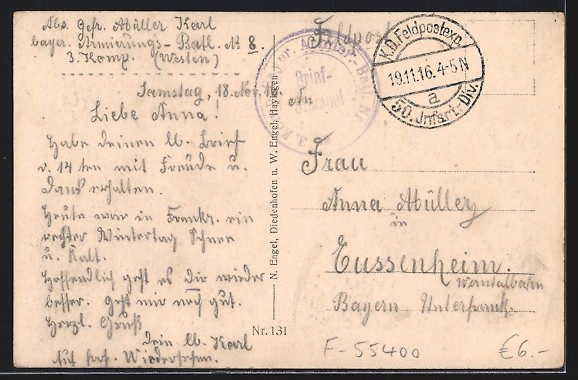 Abs. Gefr. Müller Karl
bayer. Armierungs-Batl. Nr 8.
3. Komp. (Westen)
Samstag, 18. Nov. 16.
Liebe Anna!
Habe deinen lb. Brief
v. 14 ten mit Freude u.
Dank erhalten.
Heute war in Frankr. ein
rechter Wintertag Schnee
u. Kalt.
Hoffendlich geht es Dir wieder
besser. Geht mir noch gut.
Herzl. Gruß
Dein lb. Karl
Auf Wiedersehen.
N. Engel, Diedenhofen u. W. Engel, Hayingen
Nr. 131
Feldpost
Brief-
K.D. Feldpostexp.
19.11.16. 4-5 N
a
50. Infant.-Div.
An
Frau
Anna Müller
in
Eussenheim.
Werntalbahn
Bayern Unterfrank.
F-55400
€6.-